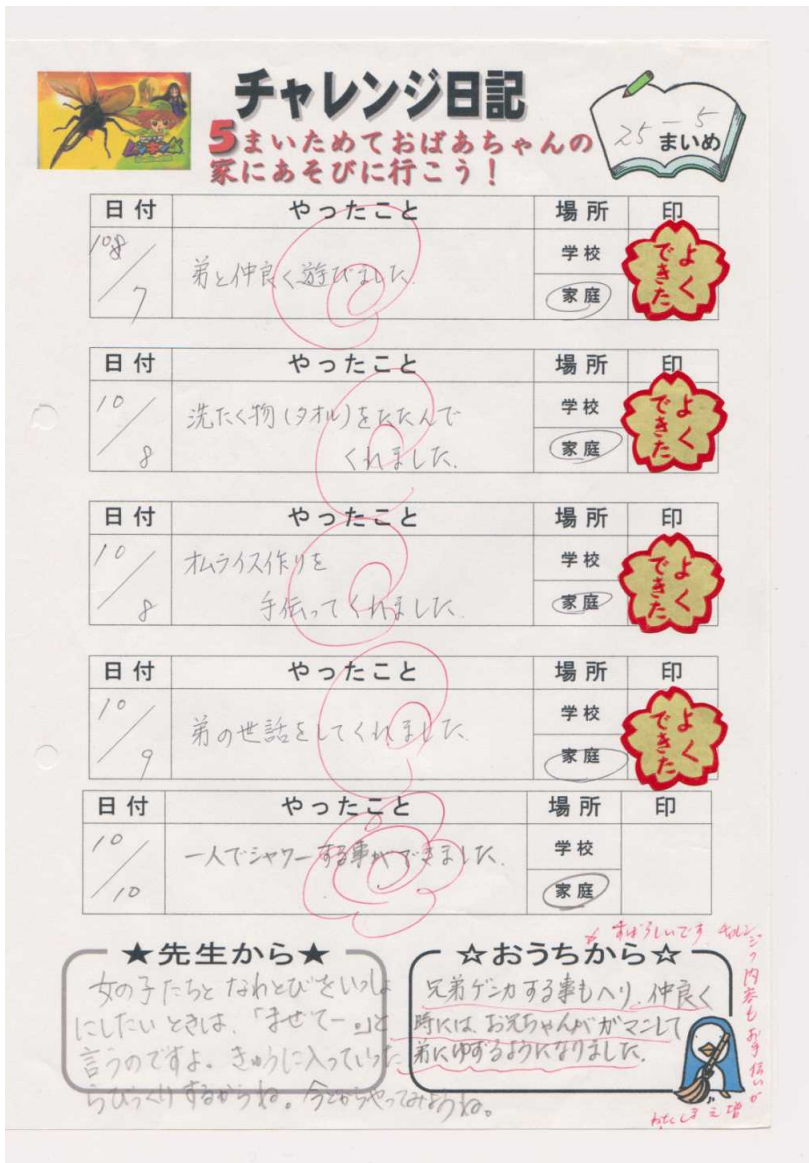 チャレンジ日記
5まいためておばあちゃんの
家にあそびに行こう！
25-5
まいめ
日付 やったこと 場所 印
10/7 弟と仲良く遊びました 学校 家庭 よくできた
日付 やったこと 場所 印
10/8 洗たく物(タオル)をたたんで 学校
くれました. 家庭 よくできた
日付 やったこと 場所 印
10/8 オムライス作りを 学校
手伝ってくれました. 家庭 よくできた
日付 やったこと 場所 印
10/9 弟の世話をしてくれました. 学校 家庭 よくできた
日付 やったこと 場所 印
10/10 一人でシャワーする事ができました. 学校 家庭
★先生から★
女の子たちとなわとびをいっしょ
にしたいときは、「まぜてー。」と
言うのですよ。きゅうに入っていった
らびっくりするからね。今どからやってみようね。
☆おうちから☆
兄弟ゲンカする事もへり、仲良く
時には、お兄ちゃんがガマンして
弟にゆずるようになりました.
すばらしいです チャレンジの内容もお手伝いが